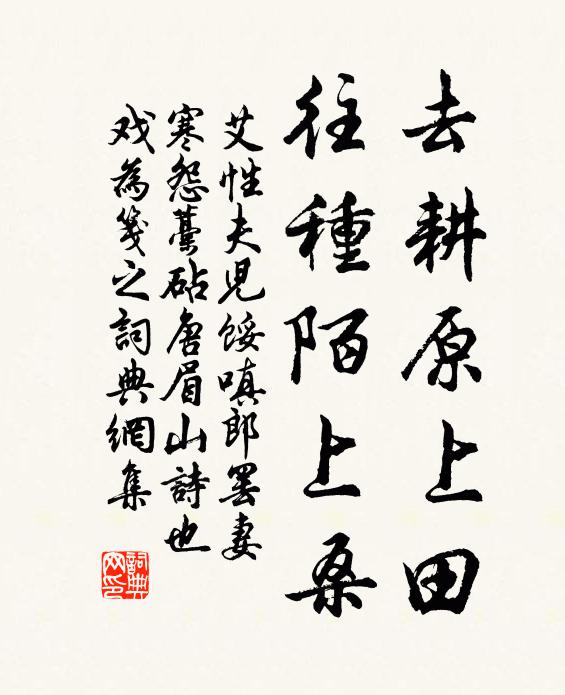 去耕原上田
往種陌上桑
艾性夫児餒嗔郎罢妻
寒怨藁砧唐眉山詩也
戏為箋之詞典網集
詞典
网印